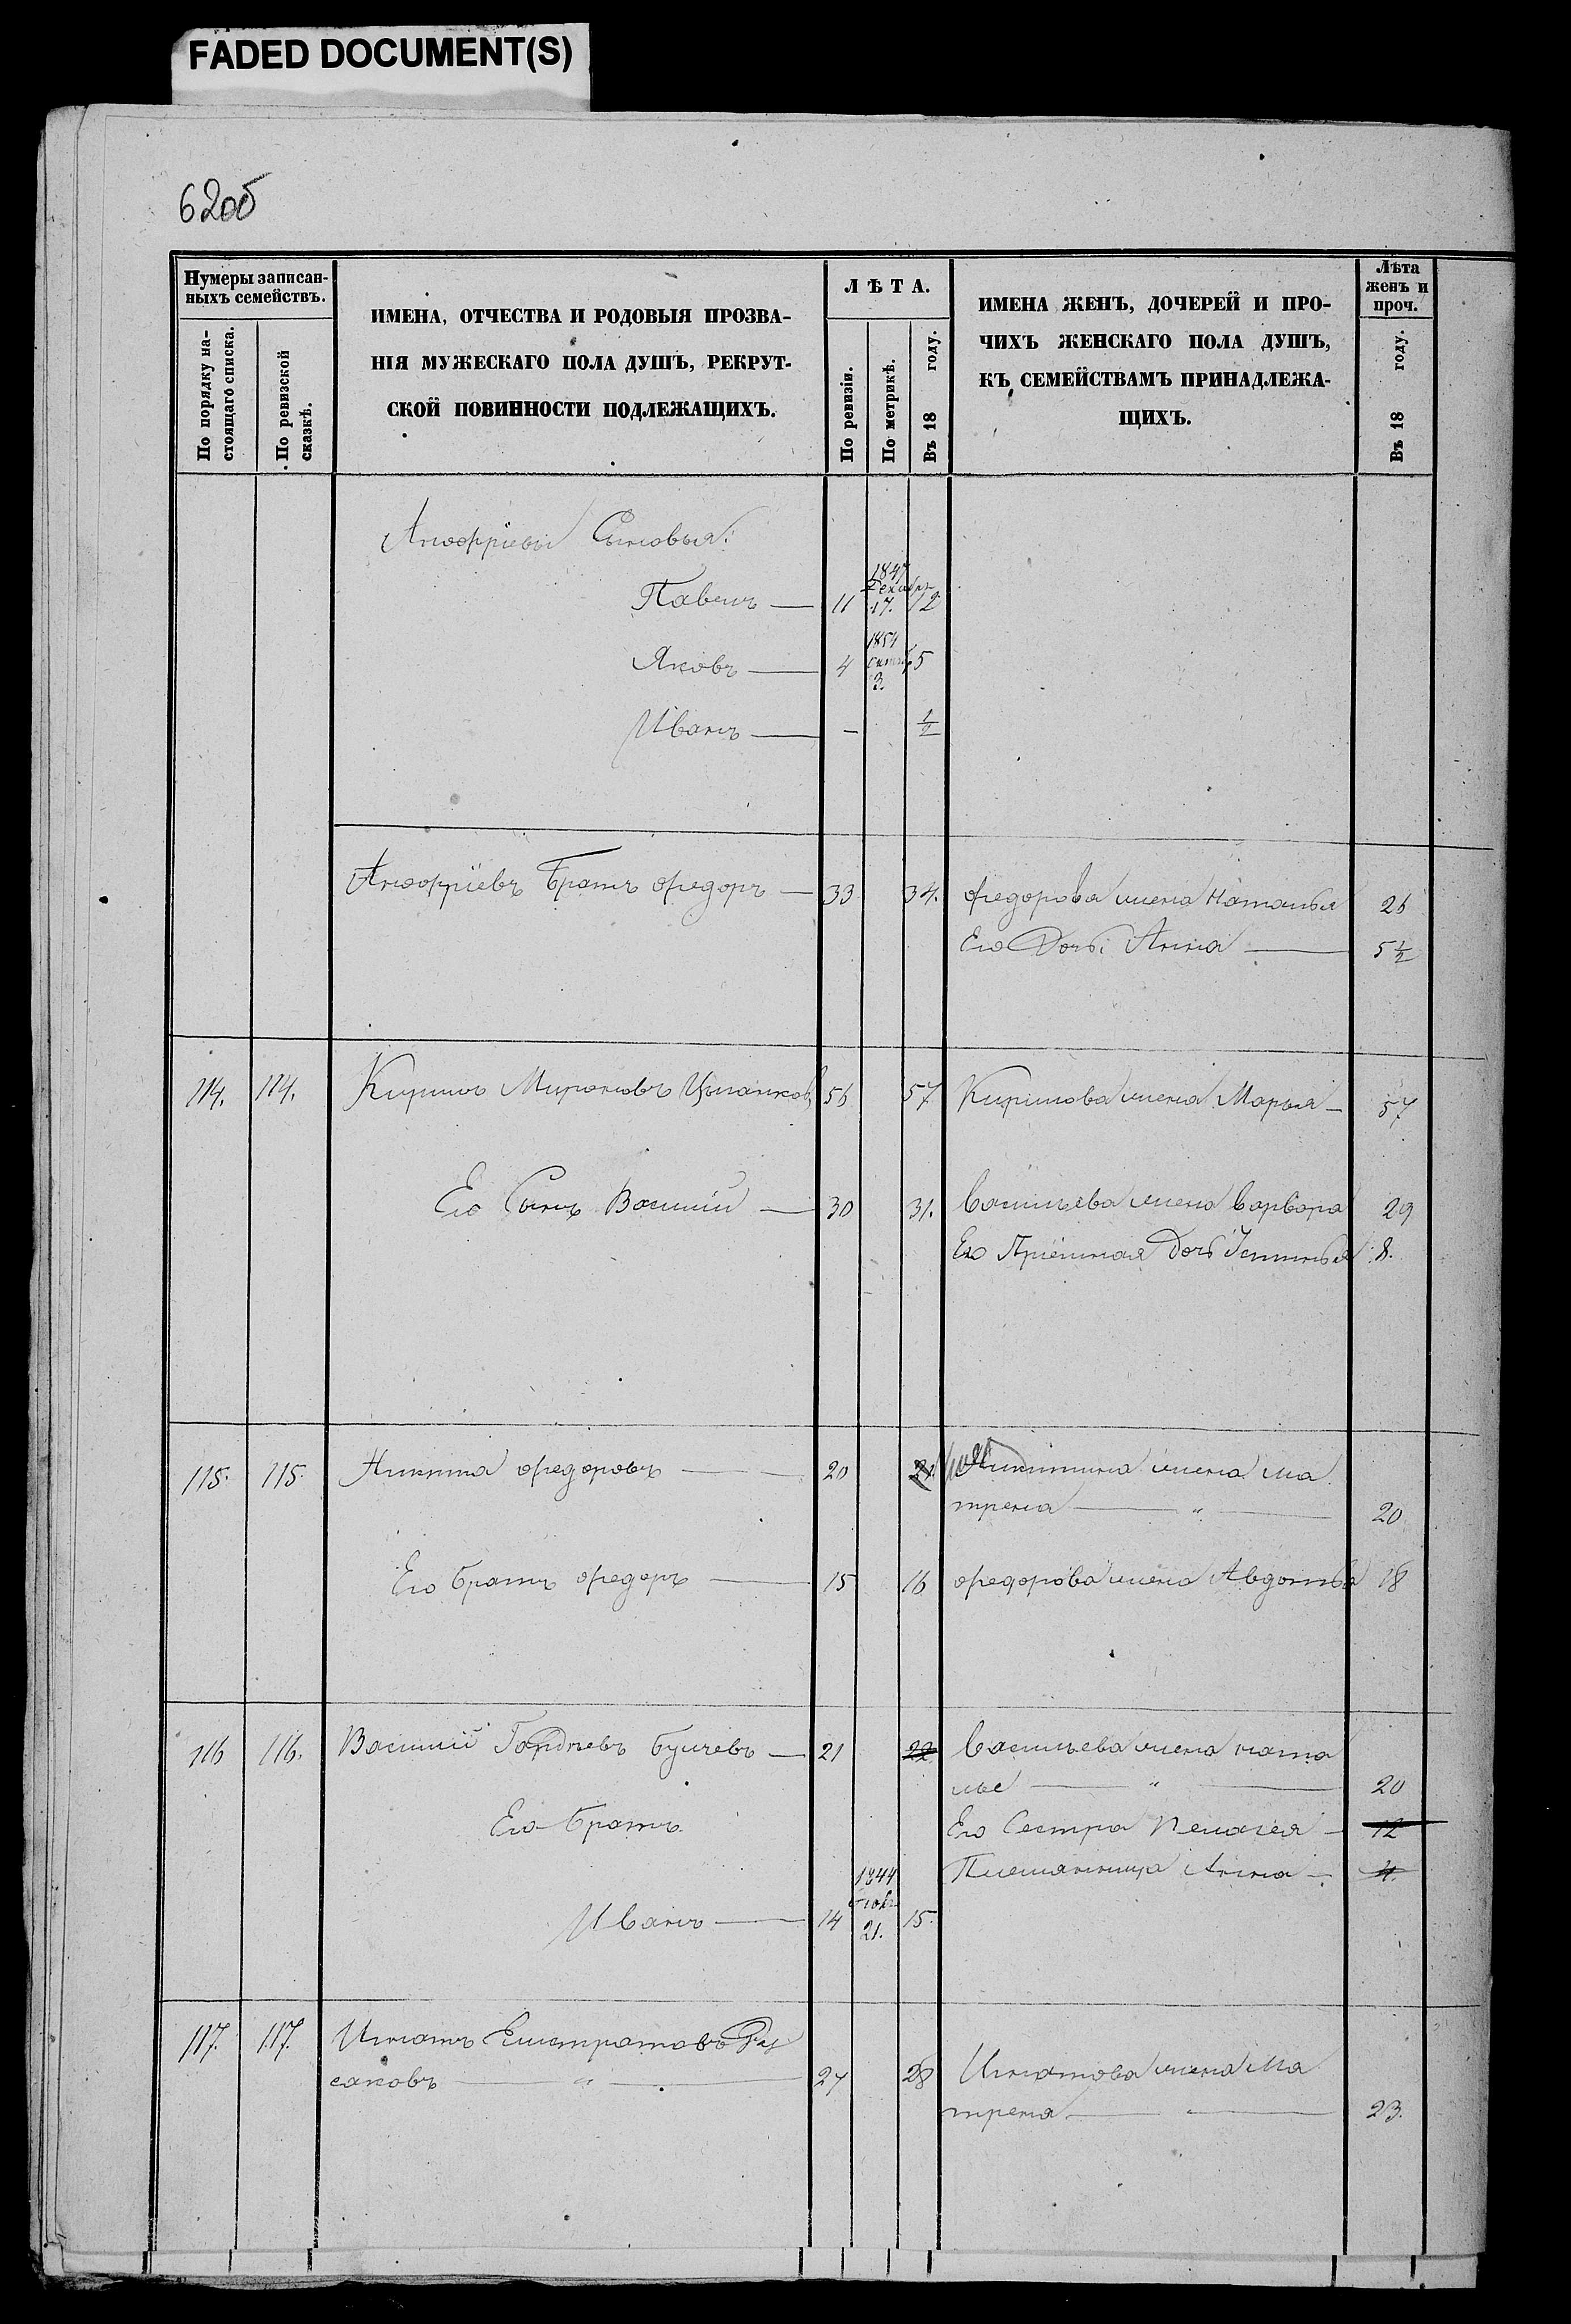 FADED DOCUMENT(S)
62об
Нумеры записан-
ныхъ семействъ.
По порядку на-
стоящаго списка.
По ревизской
сказкѣ.
ИМЕНА, ОТЧЕСТВА И РОДОВЫЯ ПРОЗВА-
НІЯ МУЖЕСКАГО ПОЛА ДУШЪ, РЕКРУТ-
СКОЙ ПОВИННОСТИ ПОДЛЕЖАЩИХЪ.
ЛѢТА.
По ревизіи.
По метрикѣ.
Въ 18 году.
ИМЕНА ЖЕНЪ, ДОЧЕРЕЙ И ПРО-
ЧИХЪ ЖЕНСКАГО ПОЛА ДУШЪ,
КЪ СЕМЕЙСТВАМЪ ПРИНАДЛЕЖА-
ЩИХЪ.
Лѣта
женъ и
проч.
Въ 18 году.
Сыновья:
1847
Декабр
Павелъ — 11 17. 12
1854
Яковъ — 4 5
3.
Иванъ — - 1/2
Братъ Федоръ — 33 34. Федорова жена Наталья 26
Его Дочь Анна — 5 1/2
114. 114. Кирилъ Мироновъ Цыганковъ 56 57 Кирилова жена Марья — 57
Его Сынъ Василій — 30 31. Васильева жена Варвара 29
Его Пріёмная Дочь Устинья 8.
115. 115. Никита Федоровъ — 20 21. Никитина жена Ма
трена — " — 20
Его братъ Федоръ — 15 16 Федорова жена Авдотья 18
116 116. Василій Гордѣевъ — 21 22 Васильева жена Ната
лье — " — 20
Его братъ Его Сестра Пелагея — 12
1844 Племянница Анна — 4.
Иванъ — 14 21. 15.
117. 117. Игнатъ Елистратовъ Ру
саковъ — " — 27 28 Игнатова жена Ма
трена — 23.